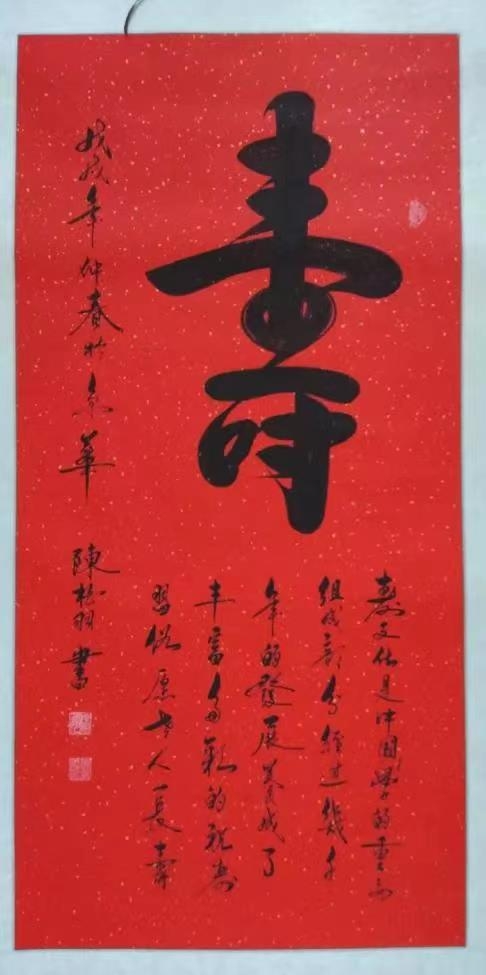 壽
寿文化是中國學的重要
組成部分經过幾千
年的發展養成了
丰富多彩的祝寿
習俗愿老人長壽
戊戌年仲春於京華
陳松羽書